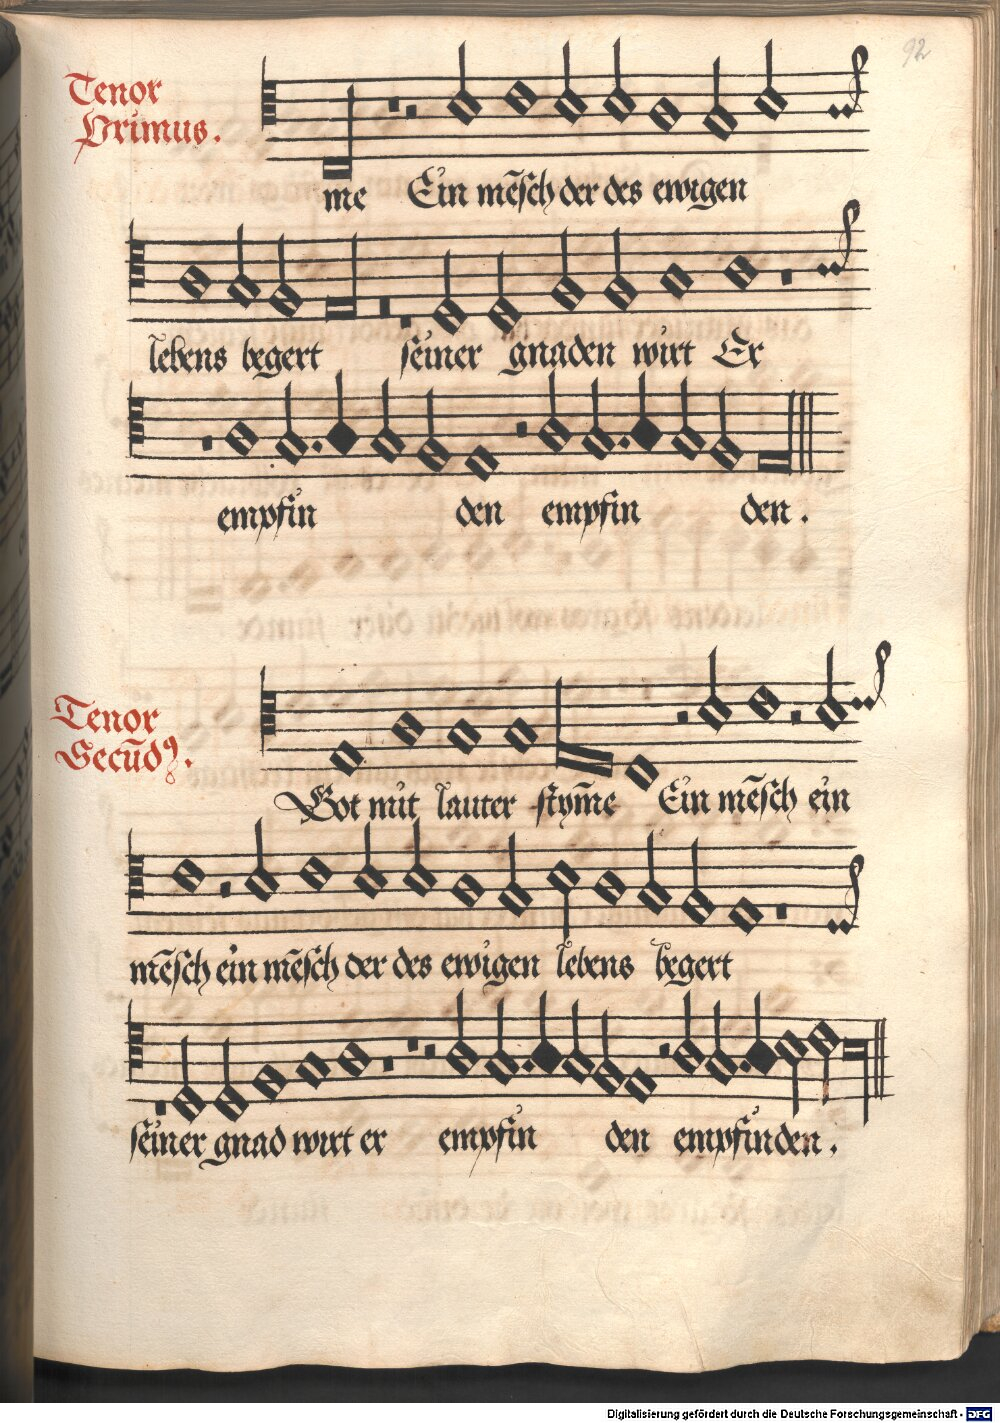 92
Tenor
Primus.
me Ein mēsch der des ewigen
lebens begert seiner gnaden wirt Er
empfin den empfin den.
Tenor
Secūdꝰ.
Got mit lauter stym̄e Ein mēsch ein
mēsch ein mēsch der des ewigen lebens begert
seiner gnad wirt er empfin den empfinden.
Digitalisierung gefördert durch die Deutsche Forschungsgemeinschaft - DFG